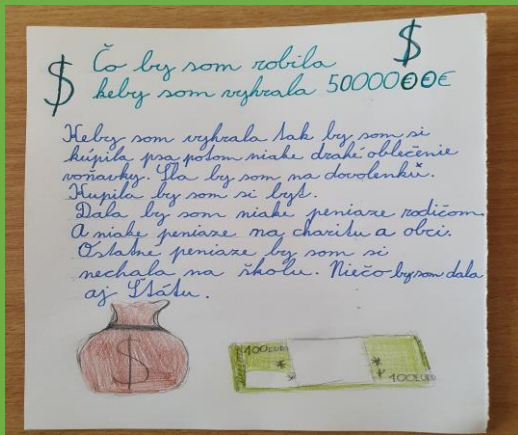 $ Čo by som robila $
keby som vyhrala 5000000€
Keby som vyhrala tak by som si
kúpila psa potom niake drahé oblečenie
voňavky. Šla by som na dovolenku.
Kupila by som si byt.
Dala by som niake peniaze rodičom.
A niake peniaze na charitu a obci.
Ostatne peniaze by som si
nechala na školu. Niečo by som dala
aj Štátu.
$
100 EURO
100 EURO